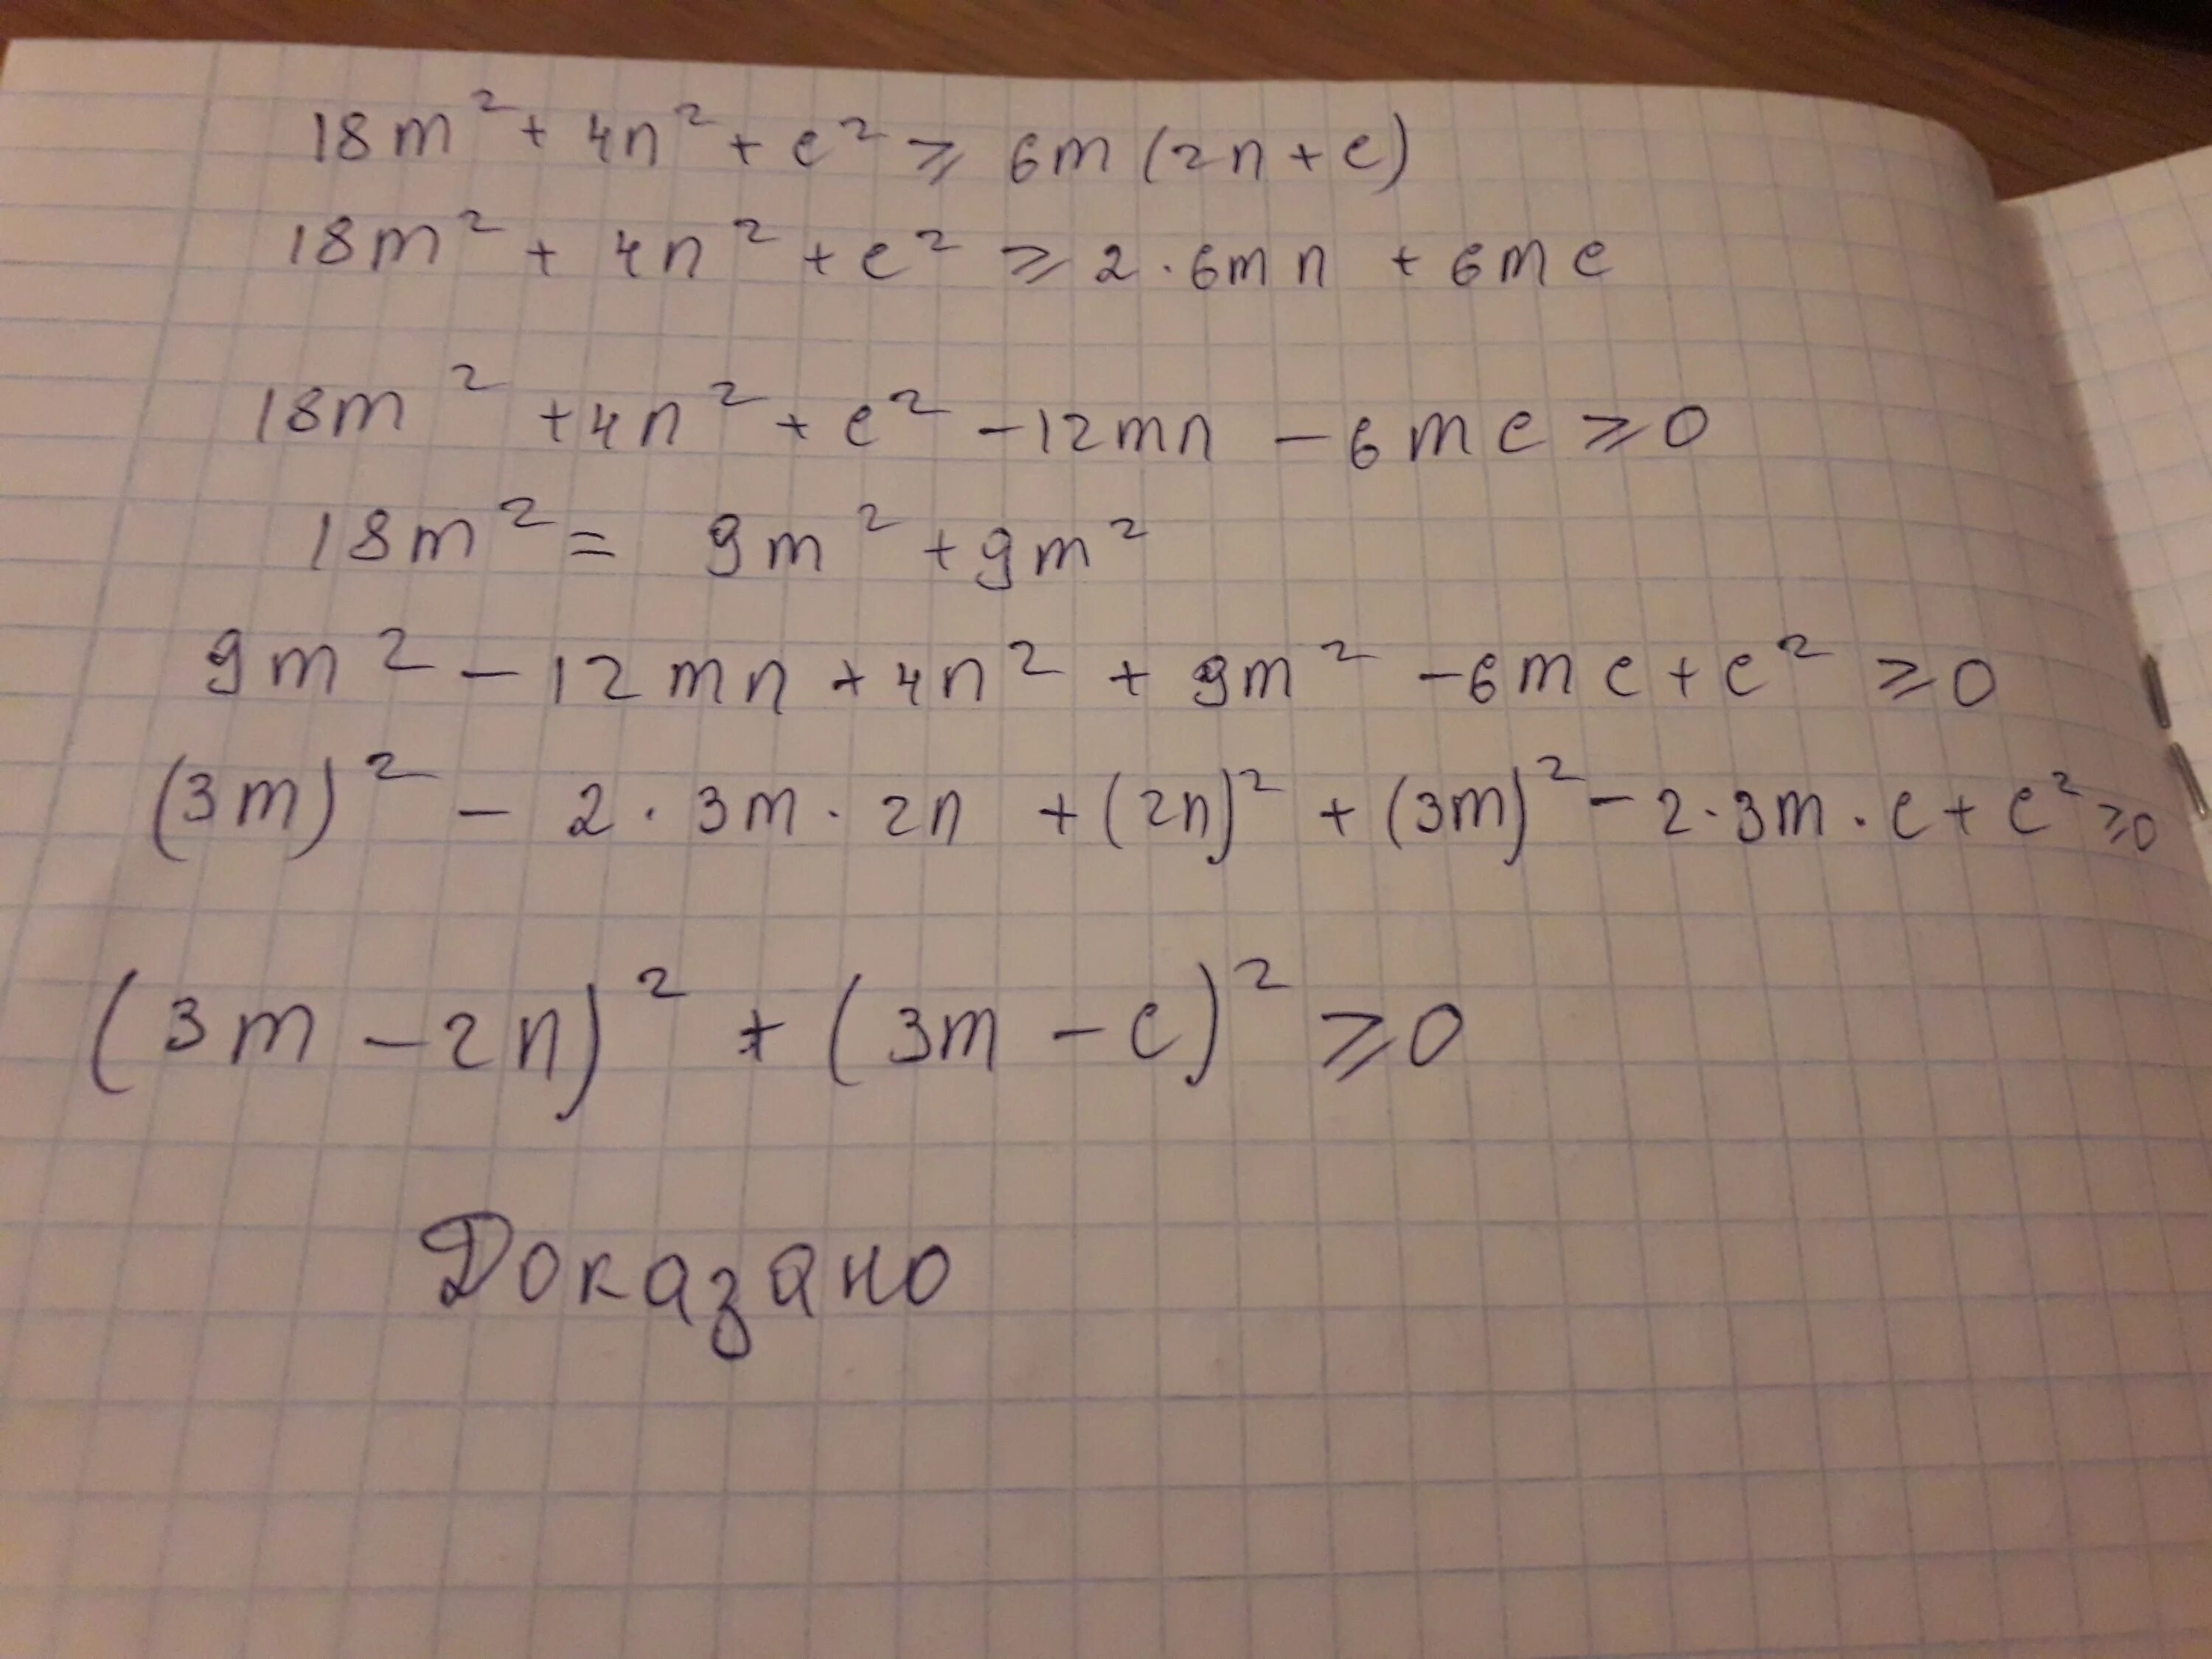 18m² + 4n² + c² ⩾ 6m (2n + c)
18m² + 4n² + c² ⩾ 2 · 6mn + 6mc
18m² + 4n² + c² - 12mn - 6mc ⩾ 0
18m² = 9m² + 9m²
9m² - 12mn + 4n² + 9m² - 6mc + c² ⩾ 0
(3m)² - 2 · 3m · 2n + (2n)² + (3m)² - 2 · 3m · c + c² ⩾ 0
(3m - 2n)² + (3m - c)² ⩾ 0
Доказано